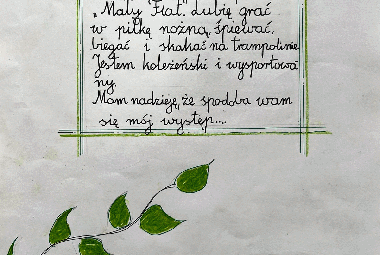 „Mały Fiat." Lubię grać
w piłkę nożną, śpiewać,
biegać i skakać na trampolinie.
Jestem koleżeński i wysportowa
ny.
Mam nadzieję, że spodoba wam
się mój występ....